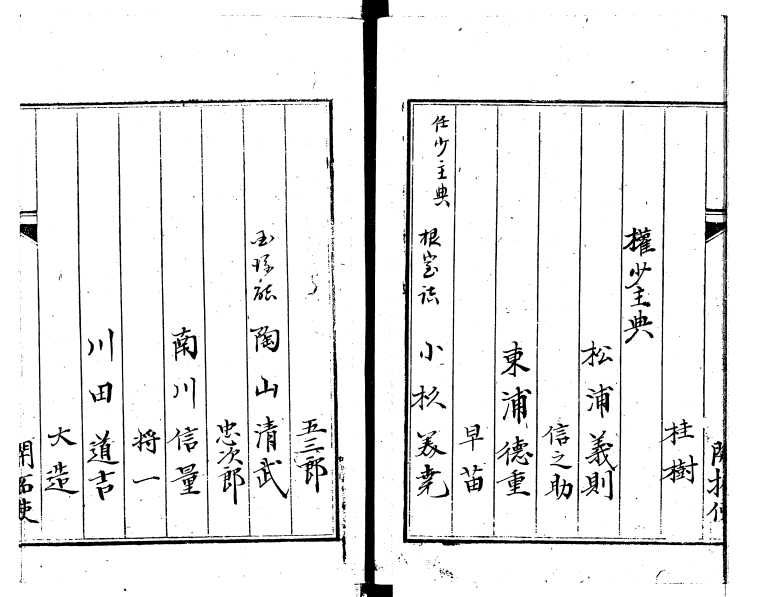 開拓使
桂樹
權少主典
松浦義則
信之助
東浦德重
早苗
任少主典 根室詰 小杉美堯
五三郎
陶山清武
忠次郎
南川信量
将一
川田道吉
大造
開拓使